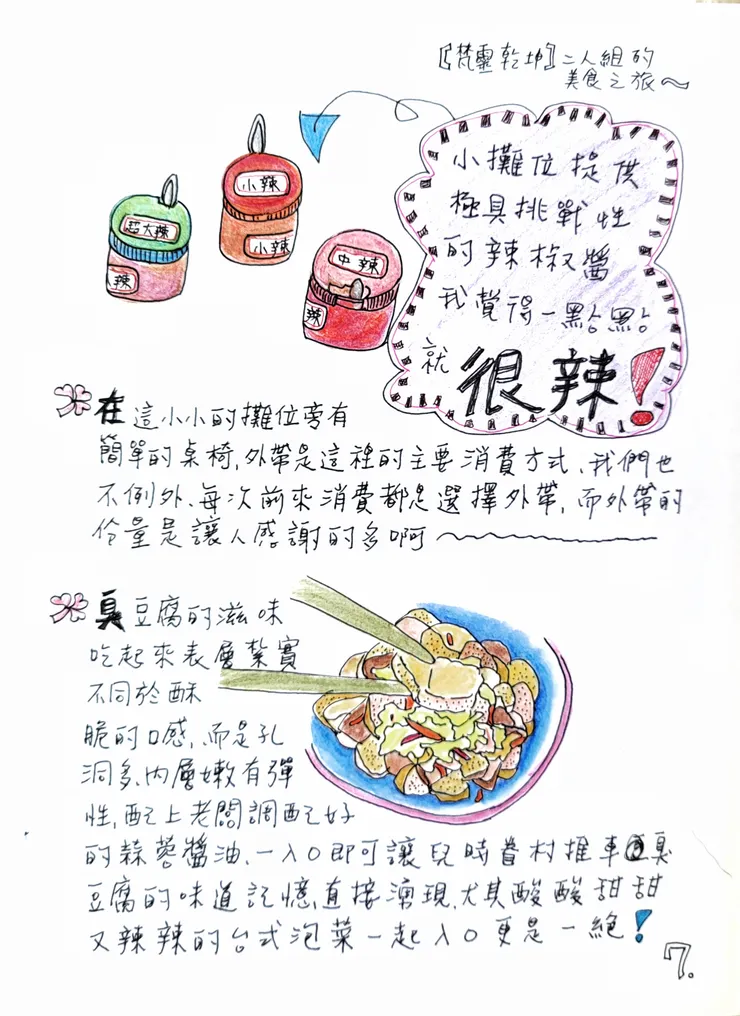 〖梵靈乾坤〗二人組的
美食之旅～
小攤位提供
極具挑戰性
的辣椒醬
我覺得一點點
就很辣!
小辣
小辣
超大辣
辣
中辣
辣
在這小小的攤位旁有
簡單的桌椅,外帶是這裡的主要消費方式、我們也
不例外、每次前來消費都是選擇外帶,而外帶的
份量是讓人感謝的多啊～
臭豆腐的滋味
吃起來表層紮實
不同於酥
脆的口感,而是孔
洞多、內層嫩有彈
性,配上老闆調配好
的蒜蓉醬油、一入口即可讓兒時眷村推車臭
豆腐的味道記憶直接湧現,尤其酸酸甜甜
又辣辣的台式泡菜一起入口更是一絕!
7.